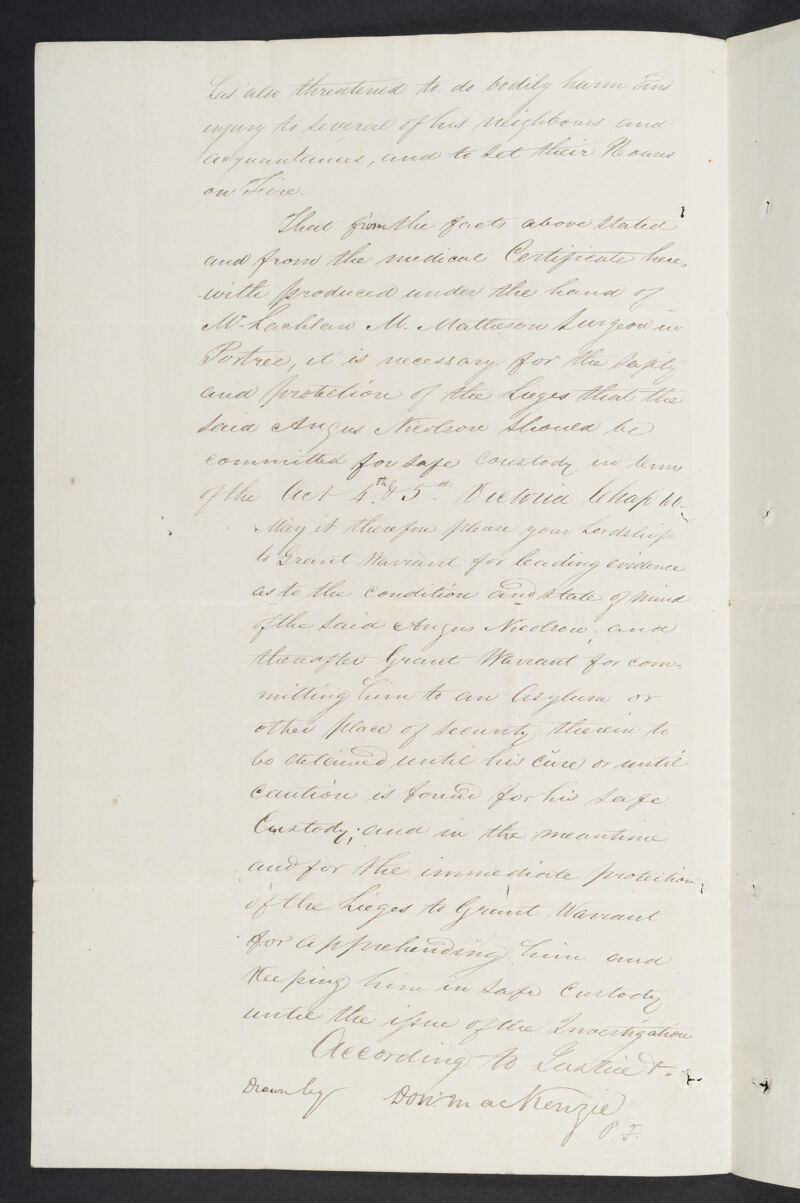 has also threatened to do bodily harm and
injury to several of his neighbours and
acquaintances, and to set their Houses
on Fire.
That from the facts above stated
and from the medical Certificate here-
with produced under the hand of
Mr. Lachlan M. Matheson Surgeon in
Portree, it is necessary for the safety
and protection of the Lieges that the
said Angus Nicolson should be
committed for safe custody in terms
of the Act 4th & 5th Victoria Chap 60.
May it therefore please your Lordship
to Grant Warrant for leading evidence
as to the condition and state of mind
of the said Angus Nicolson; and
thereafter Grant Warrant for com-
mitting him to an Asylum or
other place of security therein to
be detained until his cure or until
caution is found for his safe
Custody; and in the meantime
and for the immediate protection
of the Lieges to Grant Warrant
for apprehending him and
Keeping him in safe Custody
until the issue of the Investigation
According to Justice &.
Drawn by Don. MacKenzie
P. F.